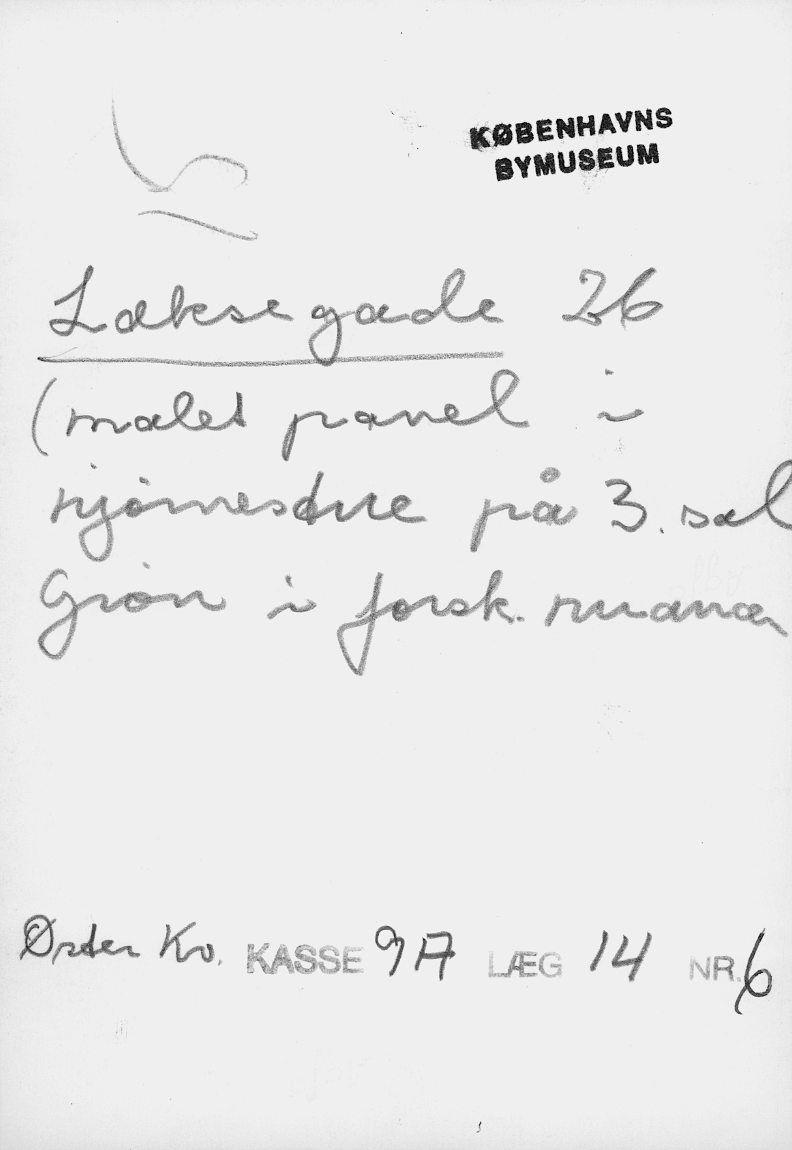 KØBENHAVNS
BYMUSEUM
Laksegade 26
(malet panel i
hjørnestue på 3. sal
Grøn i forsk. nuancer
Øster Kv. KASSE 9A LÆG 14 NR. 6